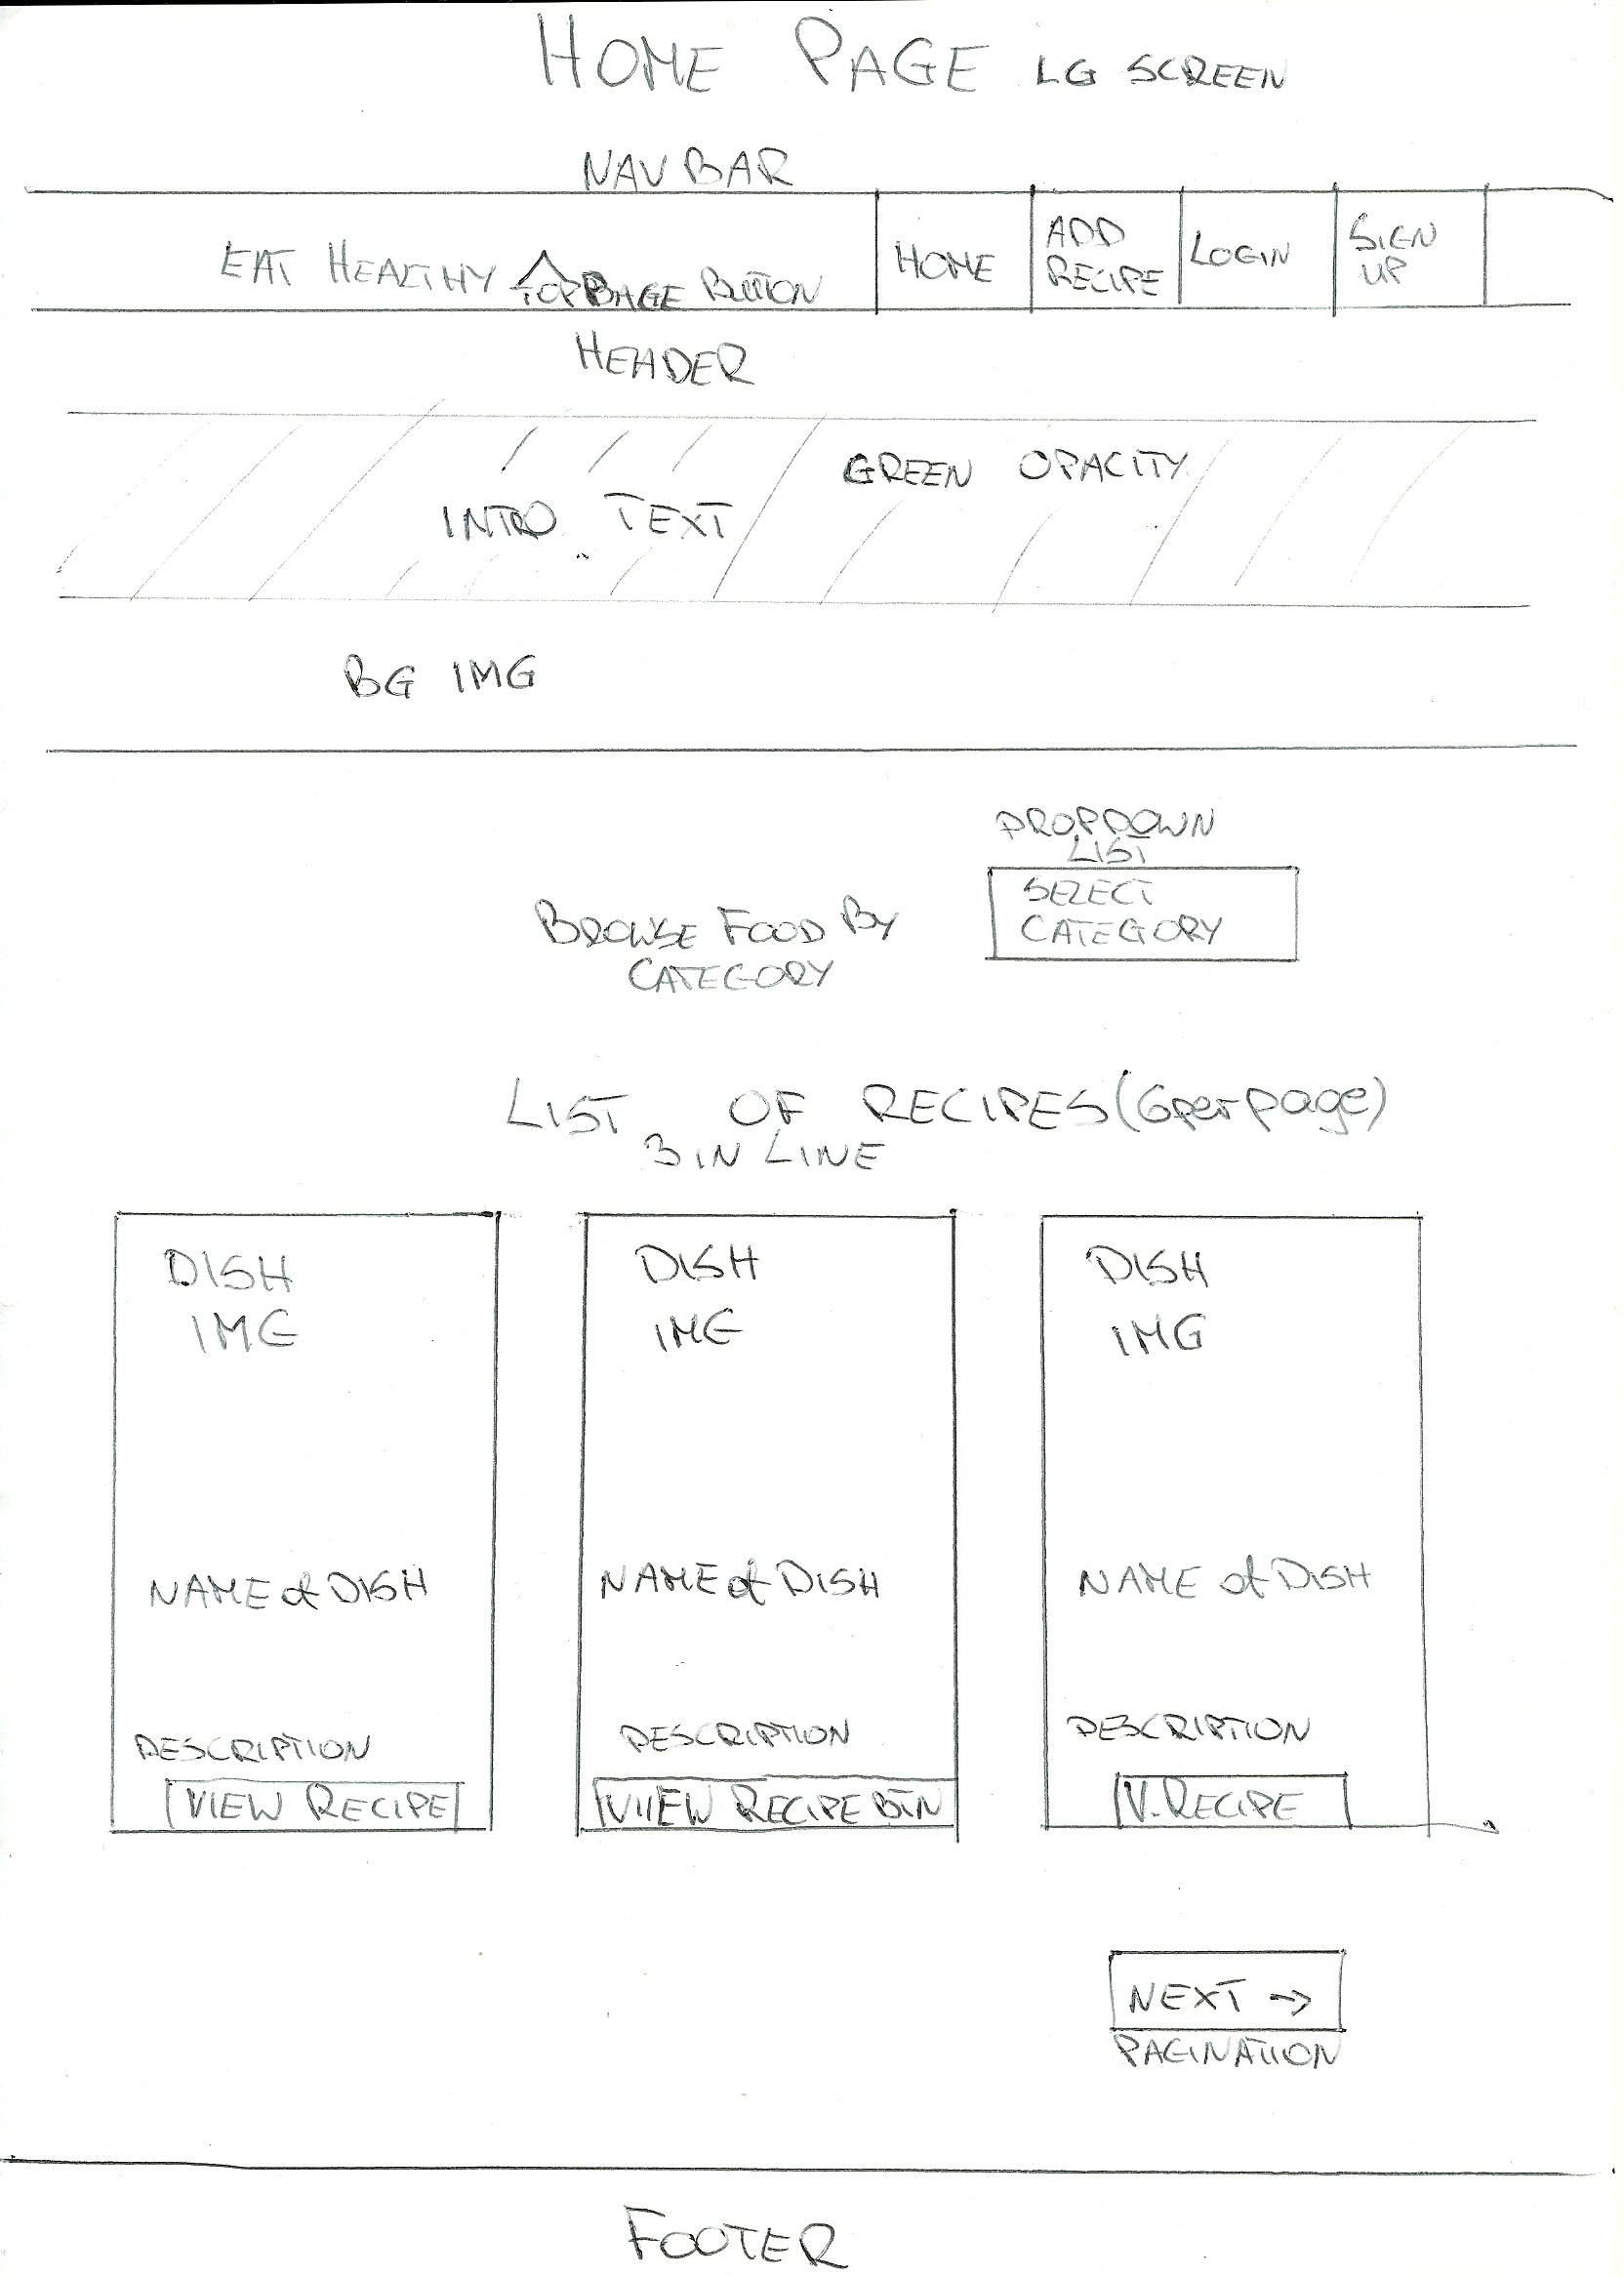 HOME PAGE LG SCREEN
NAV BAR
EAT HEALTHY TOP PAGE BUTTON
HOME
ADD
RECIPE
LOGIN
SIGN
UP
HEADER
GREEN OPACITY
INTRO TEXT
BG IMG
DROPDOWN
LIST
SELECT
CATEGORY
BROWSE FOOD BY
CATEGORY
LIST OF RECIPES (6 per page)
3 IN LINE
DISH
IMG
NAME of DISH
DESCRIPTION
VIEW RECIPE
DISH
IMG
NAME of DISH
DESCRIPTION
VIEW RECIPE BTN
DISH
IMG
NAME of DISH
DESCRIPTION
V. RECIPE
NEXT →
PAGINATION
FOOTER